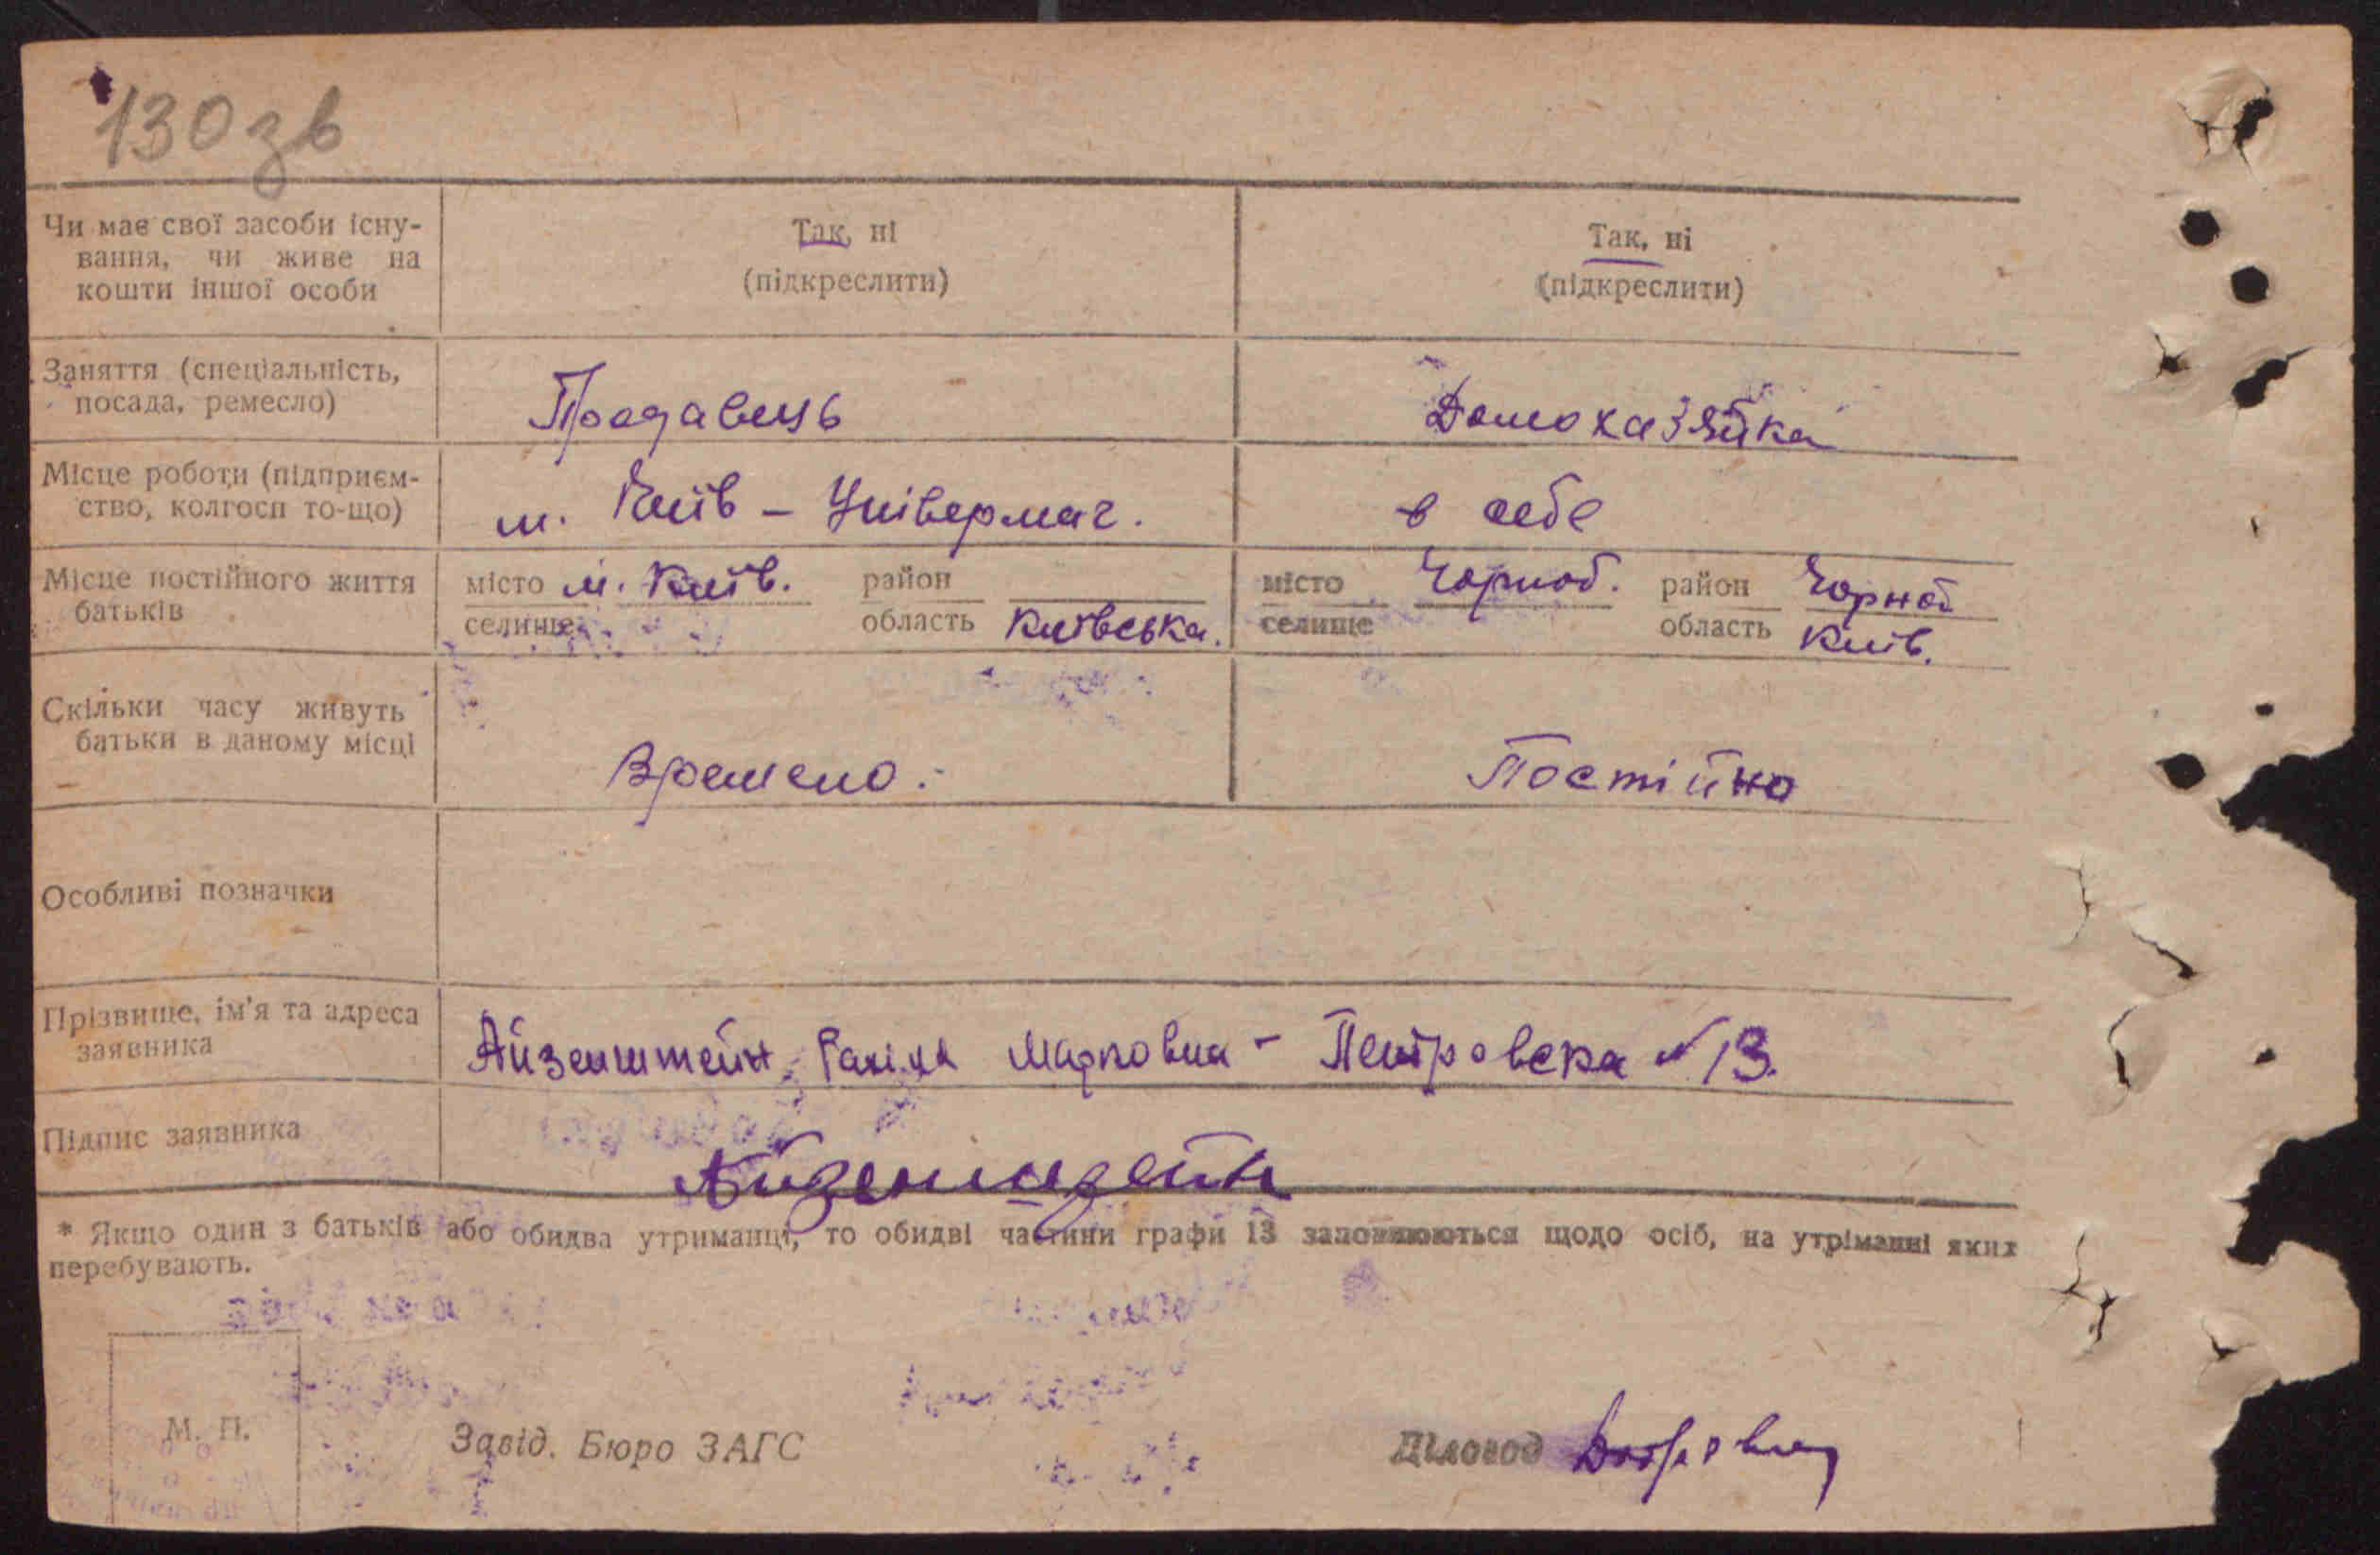 130 зв
Чи має свої засоби існу-
вання, чи живе на
кошти іншої особи
Так, ні
(підкреслити)
Так, ні
(підкреслити)
Заняття (спеціальність,
посада, ремесло)
Продавець
Домохазяйка
Місце роботи (підприєм-
ство, колгосп то-що)
м. Київ – Універмаг.
в себе
Місце постійного життя
батьків
місто м. Київ. район
селище область Київська.
місто Чорноб. район Чорноб
селище область Київ.
Скільки часу живуть
батьки в даному місці
Времено.
Постійно
Особливі позначки
Прізвище, ім'я та адреса
заявника
Айзенштейн Рахіля Марковна – Петровска № 13.
Підпис заявника
Айзенштейн
* Якщо один з батьків або обидва утриманці, то обидві частини графи 13 заповнюються щодо осіб, на утріманні яких
перебувають.
М. П.
Завід. Бюро ЗАГС
Діловод